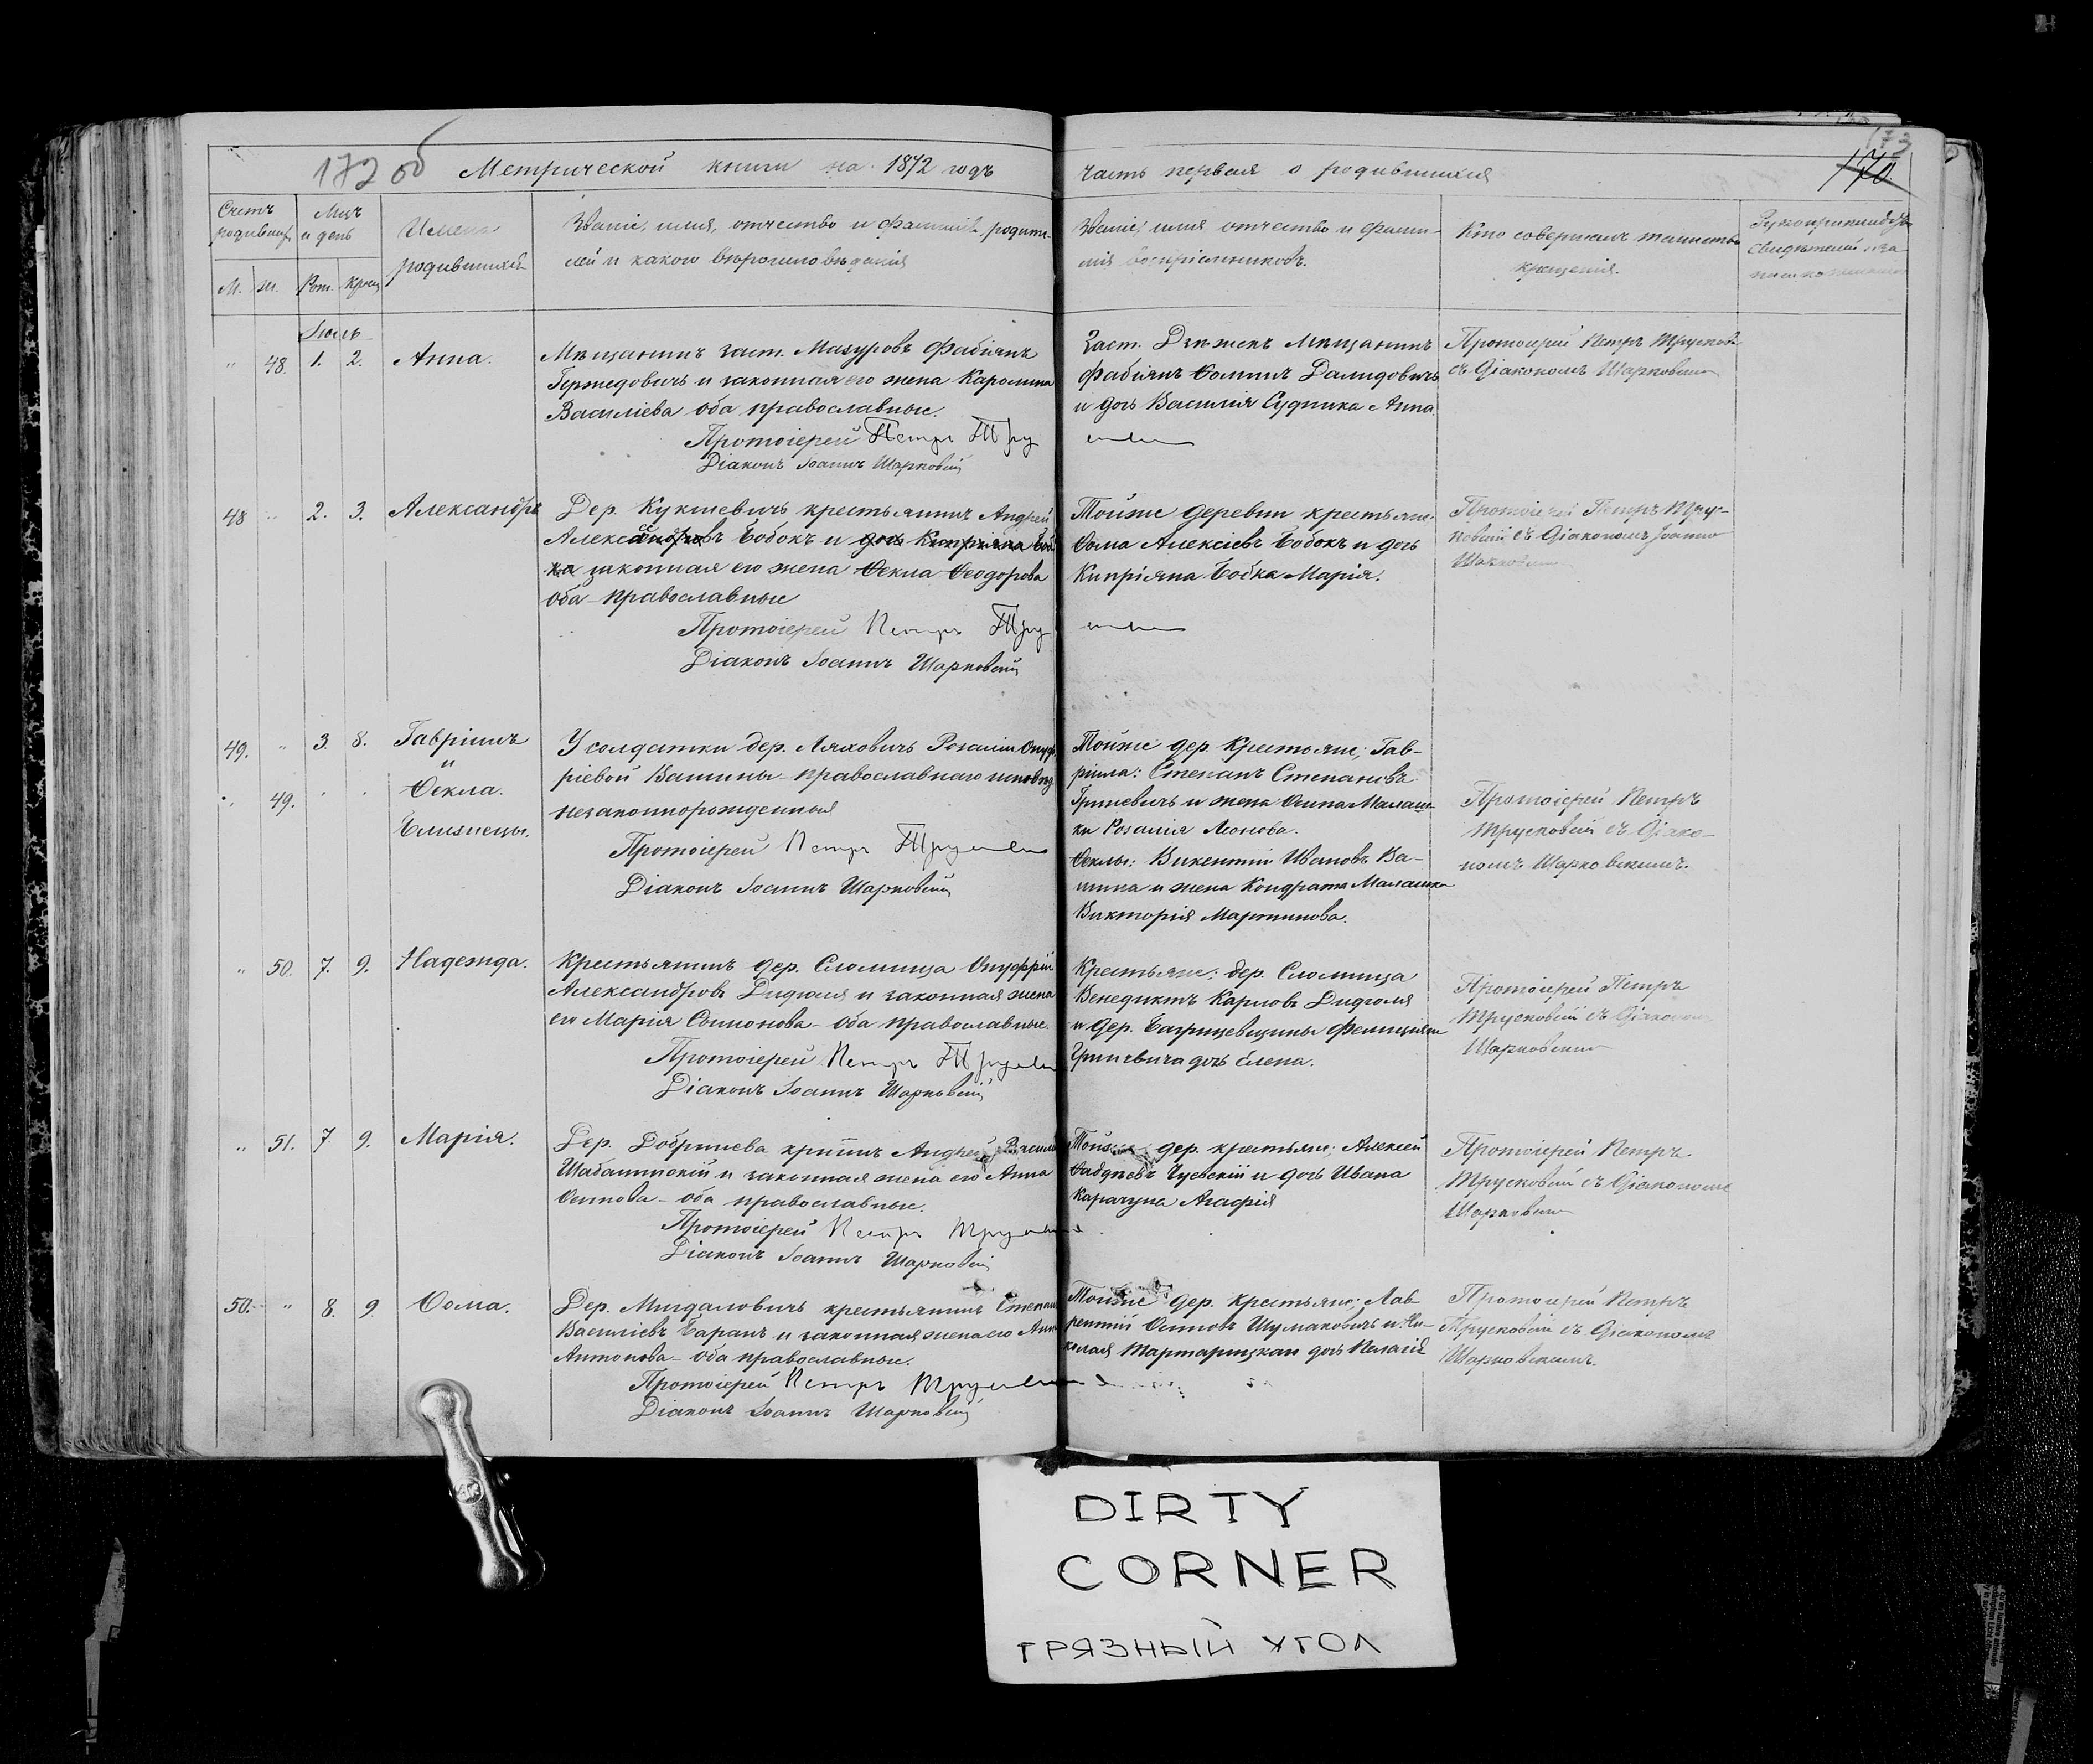 172 об Метрической книги на 1872 годъ часть первая о родившихся
173
170
Счетъ родившихся
Мцъ и день
Имена родившихся
Званіе, имя, отчество и фамилія родите-
лей и какого вѣроисповѣданія
Званіе, имя отчество и фами-
лія воспріемниковъ.
Кто совершалъ таинство
крещенія.
Рукоприкладство
свидѣтелей
М. ж. Рож. Крещ.
Іюль
" 48. 1. 2. Анна.
Мѣщанинъ заст. Мазуровъ Фабіянъ
и законная его жена Каролина
Василіева оба православные.
Протоіерей Петръ
Діаконъ Іоаннъ Шарковскій
Заст. мѣщанинъ
Фабіянъ Ѳоминъ
и дочь Василія Судника Анна.
Протоіерей Петръ
съ Діакономъ Шарковскимъ
48 " 2. 3. Александръ
Дер. Кукшевичъ крестьянинъ Андрей
Бобокъ и дочь Кипріяна
законная его жена Ѳекла Ѳеодорова
оба православные
Протоіерей Петръ
Діаконъ Іоаннъ Шарковскій
Тойже деревни крестьяне:
Ѳома Алексіевъ Бобокъ и дочь
Кипріяна Бобка Марія.
Протоіерей Петръ Тру-
ковскій съ Діакономъ Іоанно
49. " 3. 8. Гавріилъ
и
" 49. " " Ѳекла.
Близнецы.
У солдатки дер. Ляховичъ Розаліи Онуф-
ріевой Вашины православнаго исповѣд
незаконнорожденныя
Протоіерей Петръ
Діаконъ Іоаннъ Шарковскій
Тойже дер. крестьяне; Гав-
ріила: Степанъ Степановъ
Гриневичъ и жена Осипа Малаш-
ки Розалія Леонова.
Ѳеклы: Викентій Ивановъ Ва-
шина и жена Кондрата Малашки
Викторія Мартинова.
Протоіерей Петръ
Трусковскій съ Діако-
номъ Шарковскимъ.
" 50. 7. 9. Надежда.
Крестьянинъ дер. Сломница Онуфрій
Александровъ Дидюля и законная жена
его Марія Симонова оба православные.
Протоіерей Петръ
Діаконъ Іоаннъ Шарковскій
Крестьяне: дер. Сломница
Венедиктъ Карловъ Дидюля
и дер. Багрицевщины Фелиціяна
Гриневича дочь Елена.
Протоіерей Петръ
Трусковскій съ Діакономъ
Шарковскимъ
" 51. 7. 9. Марія.
Дер. Добринева Андрей
и законная жена его Анна
Осипова оба православные.
Протоіерей Петръ
Діаконъ Іоаннъ Шарковскій
Тойже дер. крестьяне: Алексей
Чуевскій и дочь Ивана
Карачуна Агафія
Протоіерей Петръ
Трусковскій съ Діакономъ
Шарковскимъ
50. " 8. 9. Ѳома.
Дер. Мигдаловичъ крестьянинъ Степанъ
Василіевъ Баранъ и законная жена его Анна
Антонова оба православные.
Протоіерей Петръ
Діаконъ Іоаннъ Шарковскій
Тойже дер. крестьяне; Лав-
рентій Осиповъ Шумаковичъ и Ни-
колая дочь Пелагія
Протоіерей Петръ
Трусковскій съ Діакономъ
Шарковскимъ.
DIRTY
CORNER
ГРЯЗНЫЙ УГОЛ